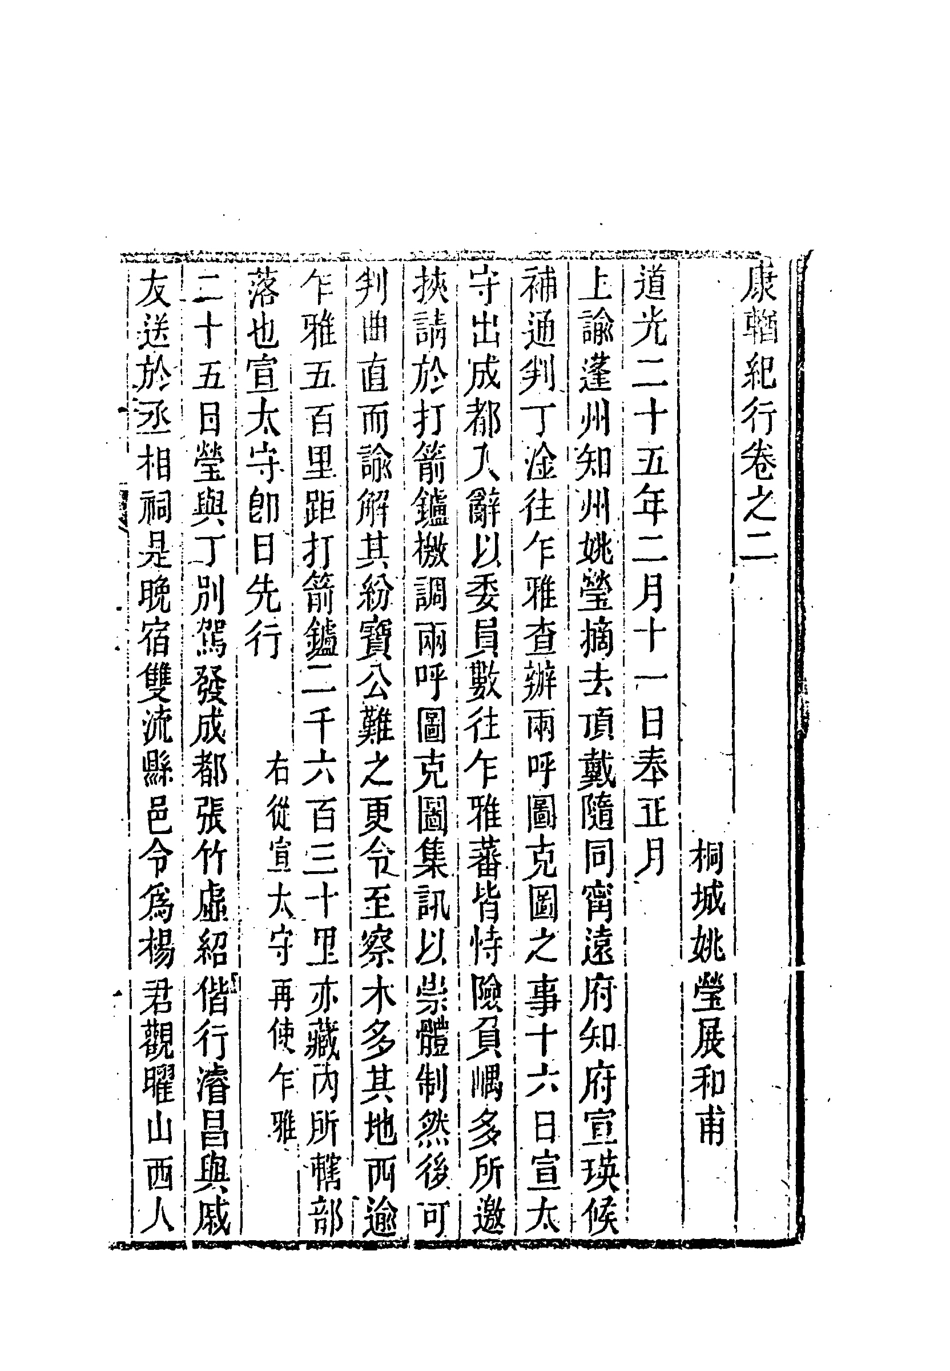 康輶紀行卷之二
桐城姚瑩展和甫
道光二十五年二月十一日奉正月
上諭蓬州知州姚瑩摘去頂戴隨同甯遠府知府宣瑛候
補通判丁淦往乍雅查辦兩呼圖克圖之事十六日宣太
守出成都入辭以委員數往乍雅蕃皆恃險負嵎多所邀
挾請於打箭鑪檄調兩呼圖克圖集訊以崇體制然後可
判曲直而諭解其紛寶公難之更令至察木多其地西逾
乍雅五百里距打箭鑪二千六百三十里亦藏內所轄部
落也宣太守卽日先行
右從宣太守再使乍雅
二十五日瑩與丁別駕發成都張竹虛紹偕行濬昌與戚
友送於丞相祠是晚宿雙流縣邑令爲楊君觀曜山西人